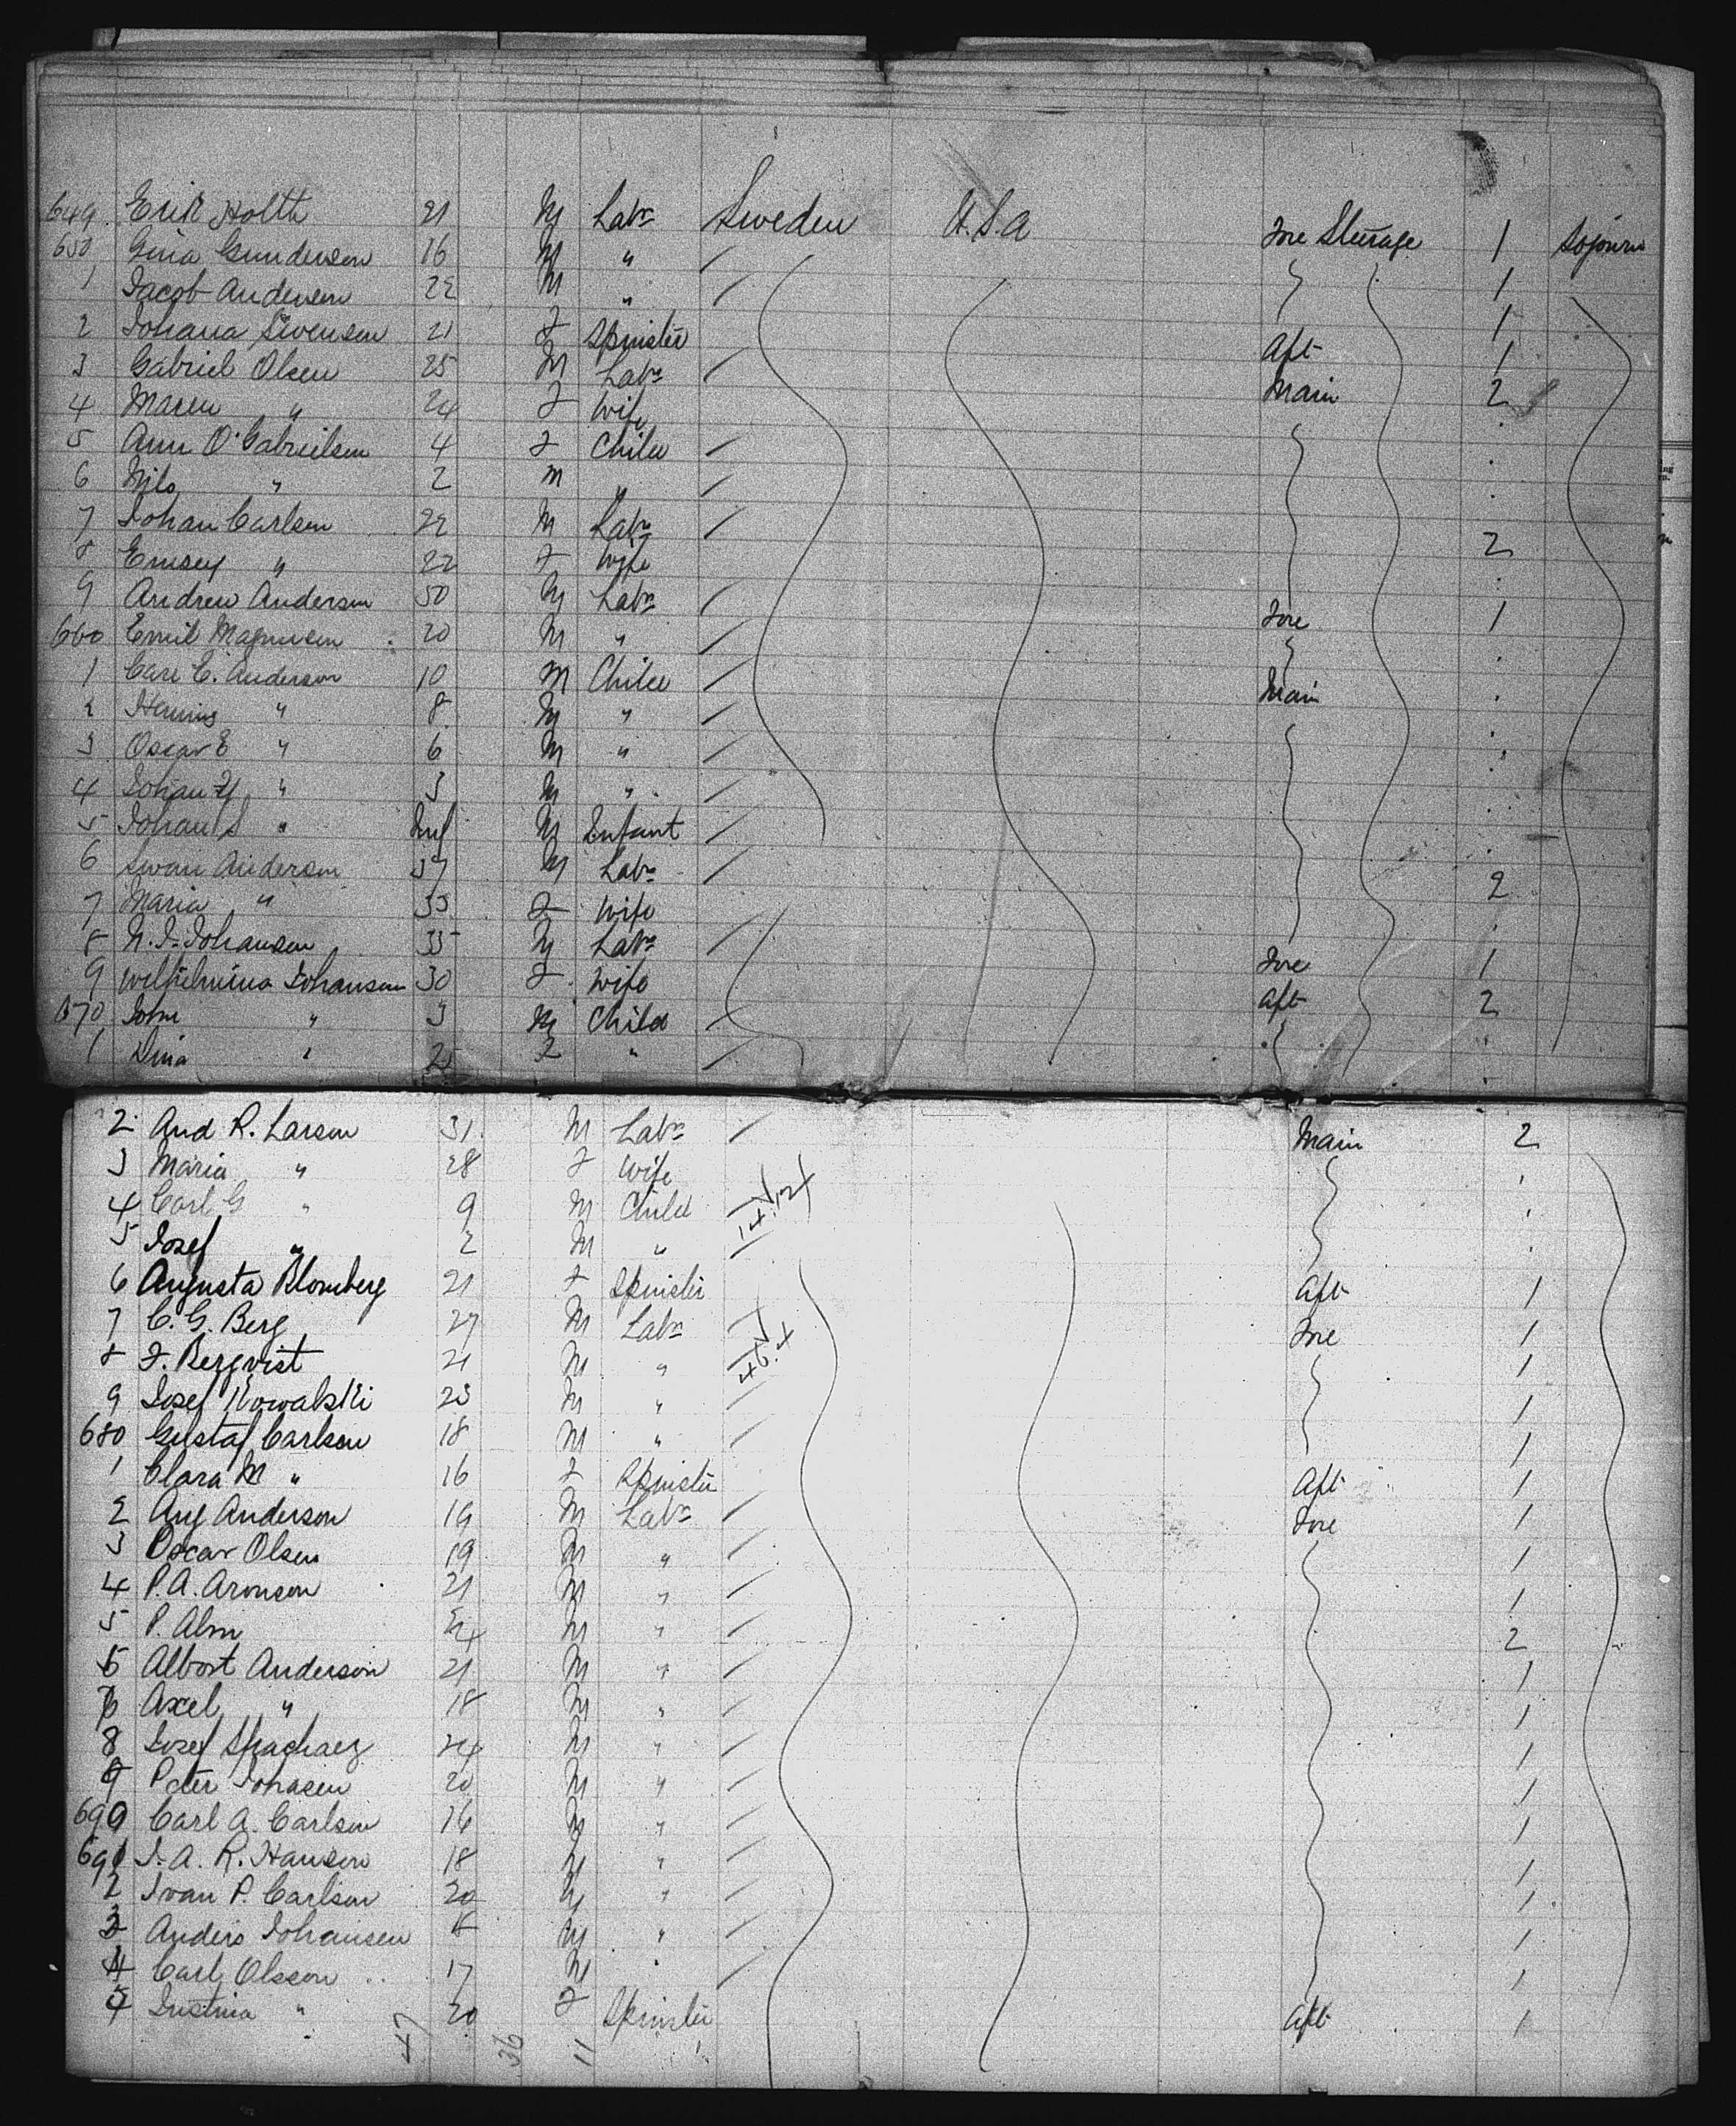 649. Erik Holth 21 M Labr Sweden U.S.A Fore Steerage 1 Sojourn
650 Gina Gundersen 16 M " 1
1 Jacob Andersen 22 M " 1
2 Johana Swensen 21 F Spinster Aft 1
3 Gabriel Olsen 25 M Labr Main 2
4 Maren " 24 F Wife
5 Ann O. Gabrielsen 4 F Child
6 Nils " 2 M "
7 Johan Carlsen 22 M Labr 2
8 Emsey " 22 F Wife
9 Andrew Anderson 50 M Labr Fore 1
660 Emil Magnusen 20 M "
1 Carl C. Anderson 10 M Child Main
2 " 8 M "
3 Oscar E " 6 M "
4 Johan " 3 M "
5 Johan S " Inf M Infant
6 Swan Anderson 37 M Labr 2
7 Maria " 33 F Wife
8 N. J. Johansen 35 M Labr Fore 1
9 Wilhelmina Johansen 30 F Wife Aft 2
670 John " 3 M Child
1 Dina " F "
2 And R. Larson 31 M Labr Main 2
3 Maria " 28 F Wife
4 Carl G " 9 M Child
5 Josef " 2 M "
6 Augusta Blomberg 21 F Spinster Aft 1
7 C. G. Berg 27 M Labr Fore 1
8 F. Bergvist 21 M " 1
9 Josef Kowalski 23 M " 1
680 Gustaf Carlson 18 M " 1
1 Clara M " 16 F Spinster Aft 1
2 Aug Anderson 19 M Labr Fore 1
3 Oscar Olsen 19 M " 1
4 P. A. Aronson 21 M " 1
5 P. Alm M " 2
Albort Anderson 21 M " 1
Axel " 18 M " 1
8 Josef 24 M " 1
9 Peter Johasen 20 M " 1
690 Carl A. Carlson 16 M " 1
691 J. A. R. Hansen 18 M " 1
2 Ivan P. Carlson 20 M " 1
3 Anders Johansen 18 M " 1
4 Carl Olsson 17 M " 1
5 Justina " 20 F Spinster Aft 1
47 36 11